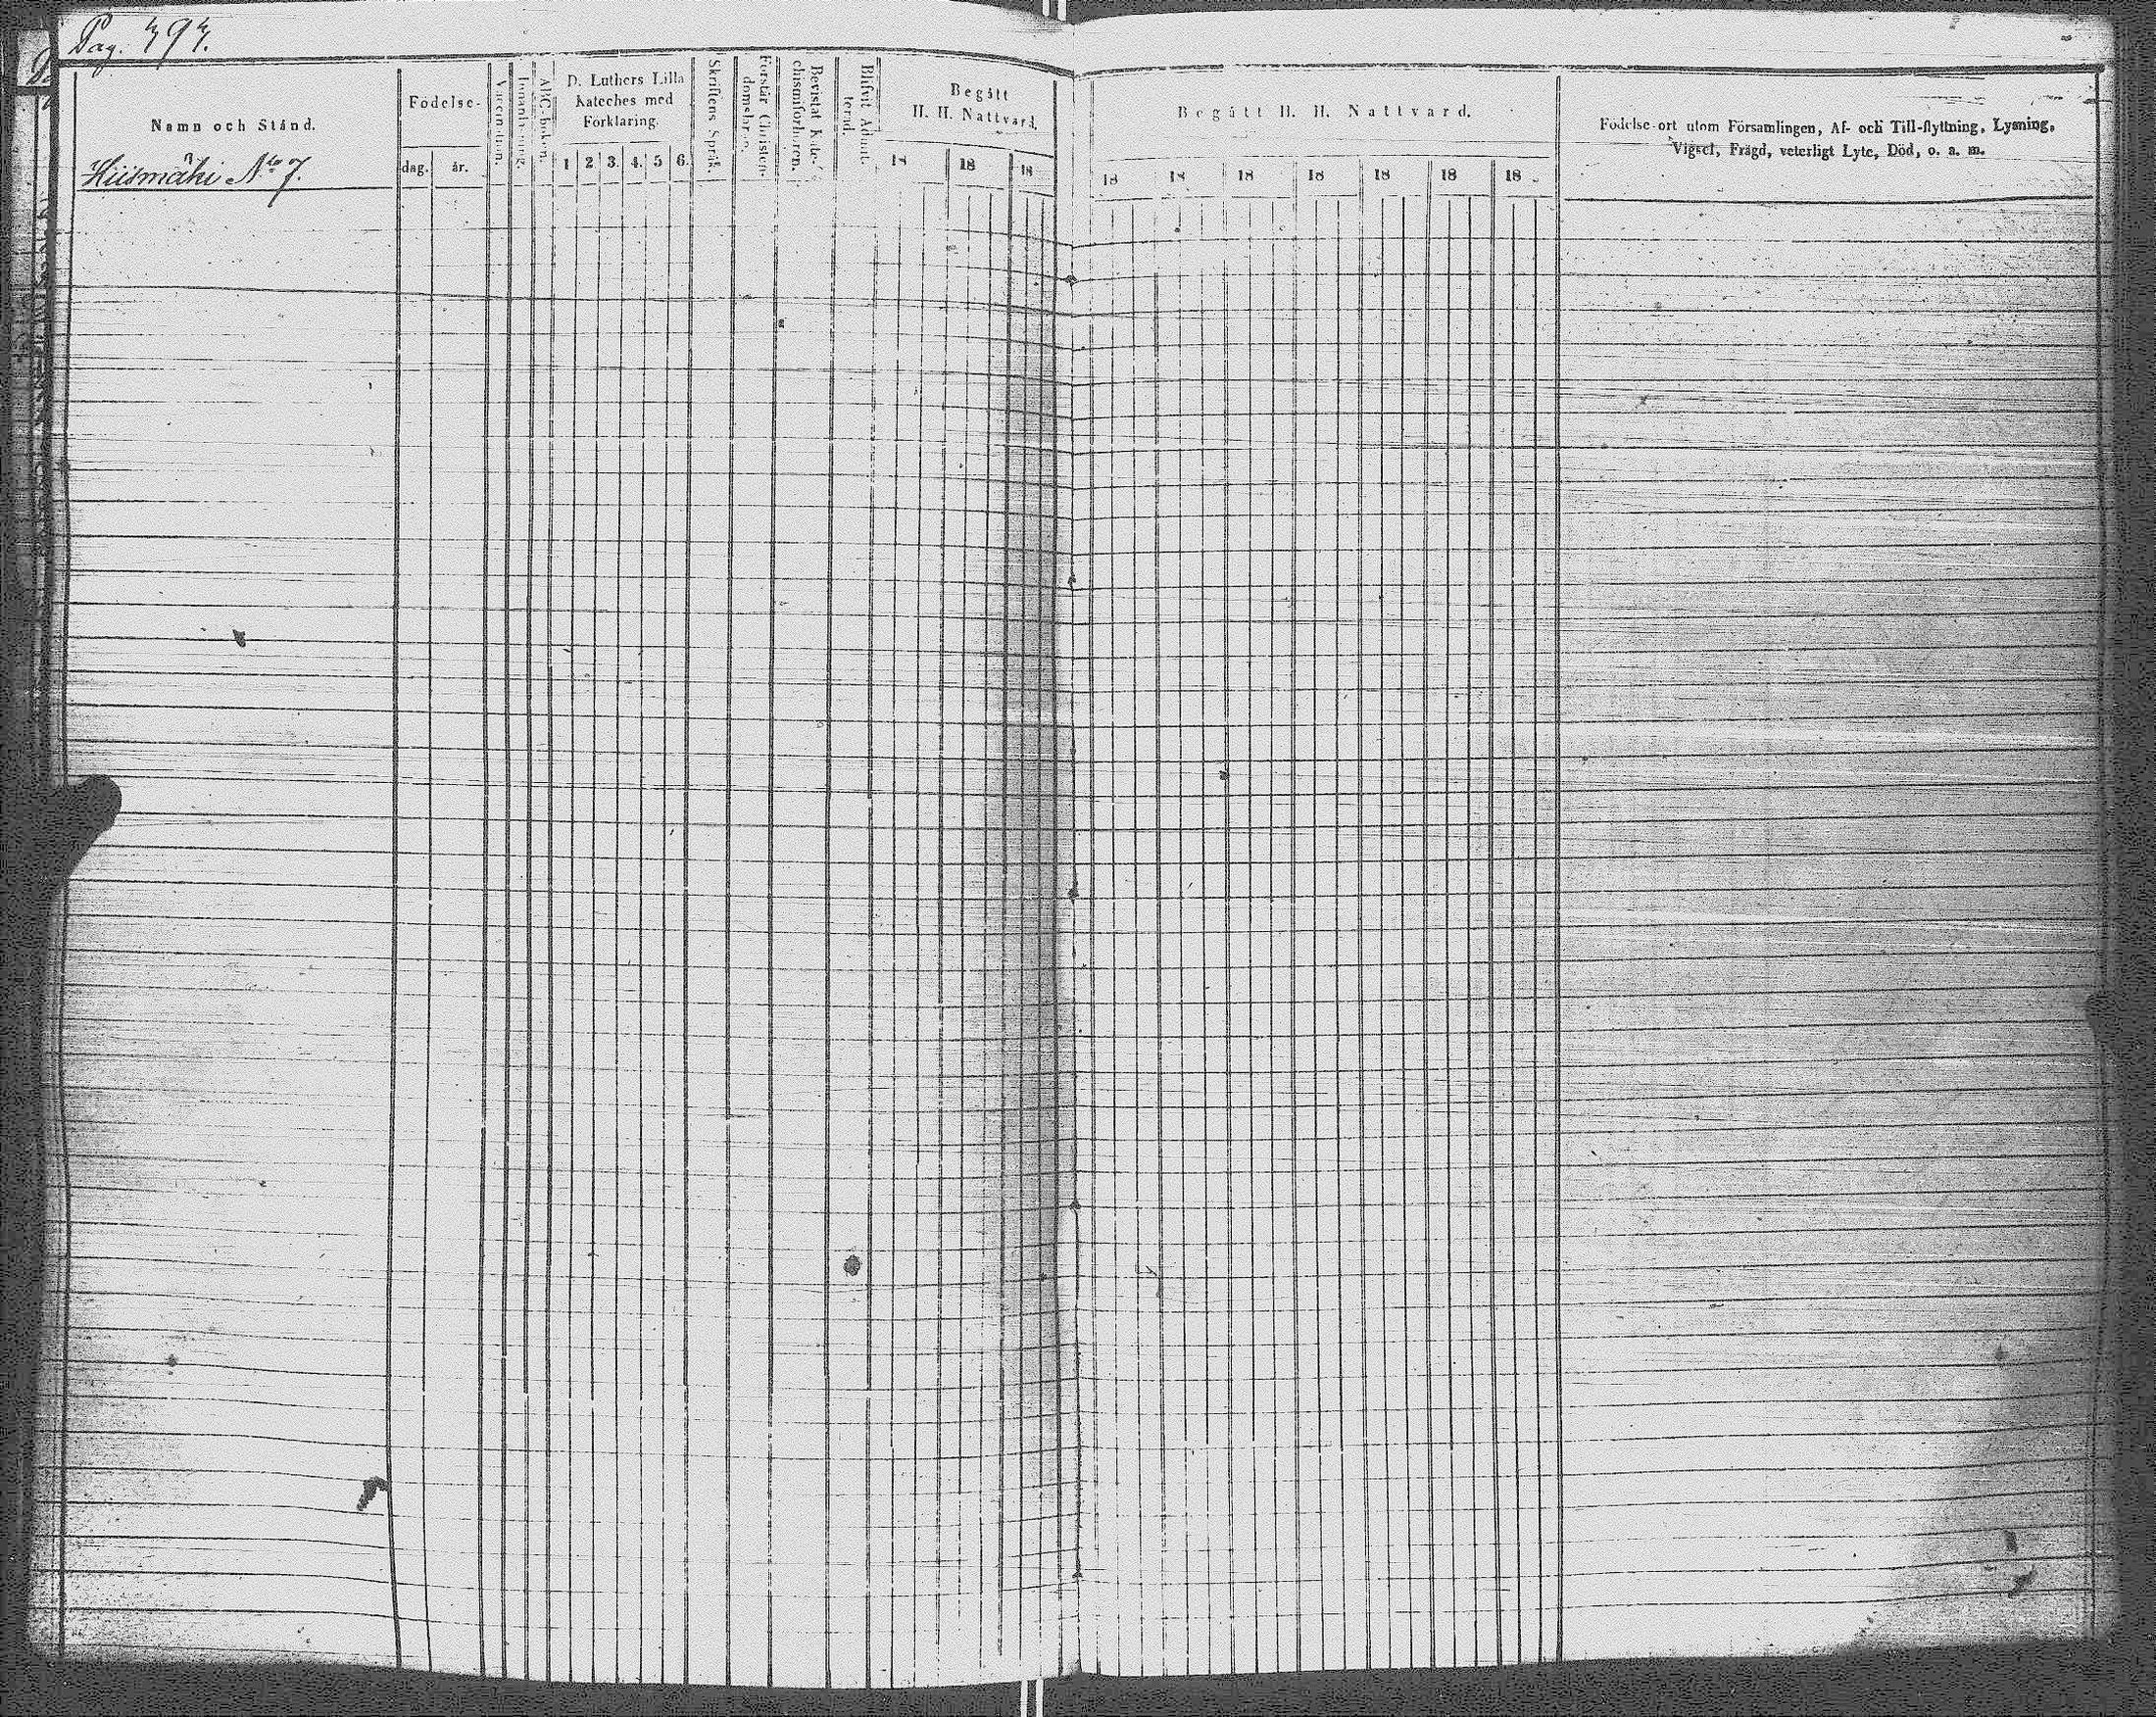 Pag. 393.
Namn och Stånd.
Hiismäki No 7.
Födelse-
dag. år.
Vaccination.
Innanläsning.
ABC-boken.
D. Luthers Lilla
Kateches med
Förklaring.
1 2 3. 4. 5 6.
Skriftens Språk.
Förstår Christen-
domslär:n.
Bevistat Kate-
chismiförhören.
Blifvit Admit-
terad.
Begått
H. H. Nattvard.
18 18 18
Begått H. H. Nattvard.
18 18 18 18 18 18 18
Födelse-ort utom Församlingen, Af- och Till-flyttning, Lysning,
Vigsel, Frägd, veterligt Lyte, Död, o. a. m.